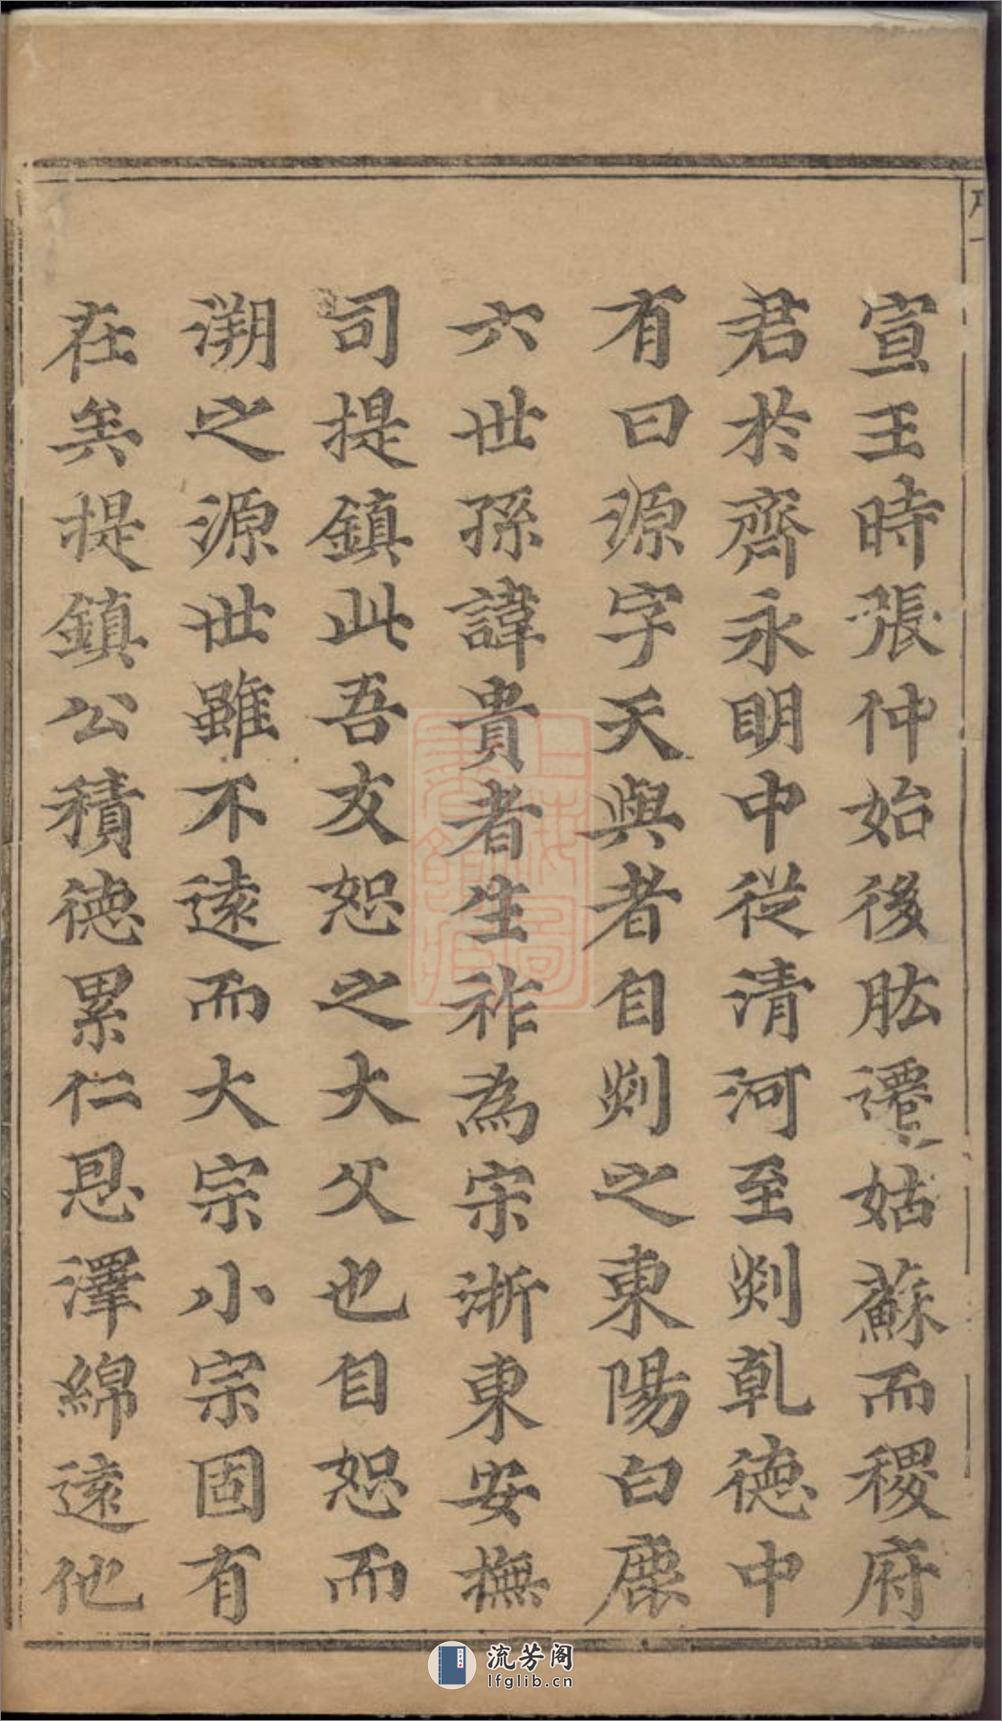 宣王時張仲始後肱遷姑蘇而稷府
君於齊永明中從清河至剡乾德中
有曰源字天與者自剡之東陽白鹿
六世孫諱貴者生祚為宋浙東安撫
司提鎮此吾友恕之大父也自恕而
溯之源世雖不遠而大宗小宗固有
在矣提鎮公積德累仁恩澤綿遠他
流芳阁
lfglib.cn